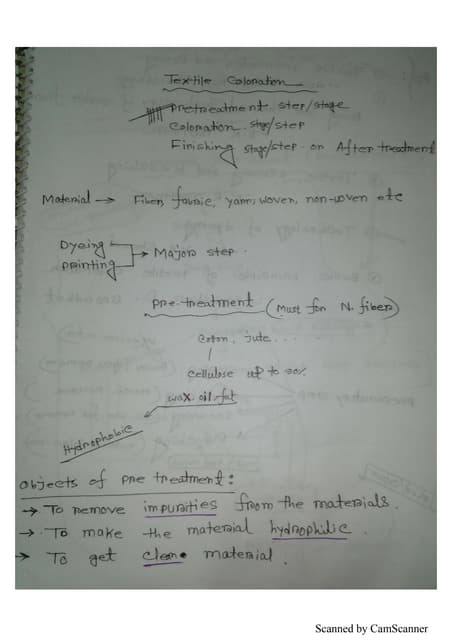 Textile Coloration
Pretreatment step/stage
Coloration stage/step
Finishing stage/step or After treatment
Material → Fiber, fabric, yarn, woven, non-woven etc
Dyeing
Printing → Major step.
Pre-treatment (Must for N. fiber)
Coton, jute...
cellulose up to 90%
wax.oil.fat
Hydrophobic
Objects of pre treatment:
→ To remove impurities from the materials.
→ To make the material hydrophilic.
→ To get clean material.
Scanned by CamScanner